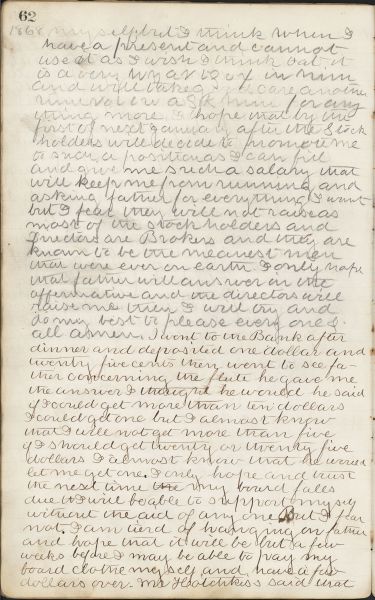 62
1868 myself but I think when I
have a present and cannot
use it as I wish I think but it
is a very in him
and will take care another
for any
thing more I hope that by the
first of next January after the Stock
holders will decide to promote me
to such a position as I can fill
and give me such a salary that
will keep me from running and
asking father for everything I want
but I fear they will not raise as
most of the stock holders and
directors are Brokers and they are
known to be the meanest men
that were ever on earth I only hope
that father will answer in the
affirmative and the directors will
raise me then I will try and
do my best to please every one &
all amen. I went to the Bank after
dinner and deposited one dollar and
twenty five cents then went to see fa-
ther concerning the flute he gave me
the answer I thought he would he said
if I could get more than ten dollars
I could get one but I almost know
that I will not get more than five
if I should get twenty or twenty five
dollars I almost know that he would
let me get one. I only hope and trust
the next time the my board falls
due I will be able to support myself
without the aid of any one But I fear
not. I am tierd of hanging on father
and hope that it will be but a few
weeks before I may be able to pay my
board clothe myself and have a few
dollars over. Mr Hotchkiss said that